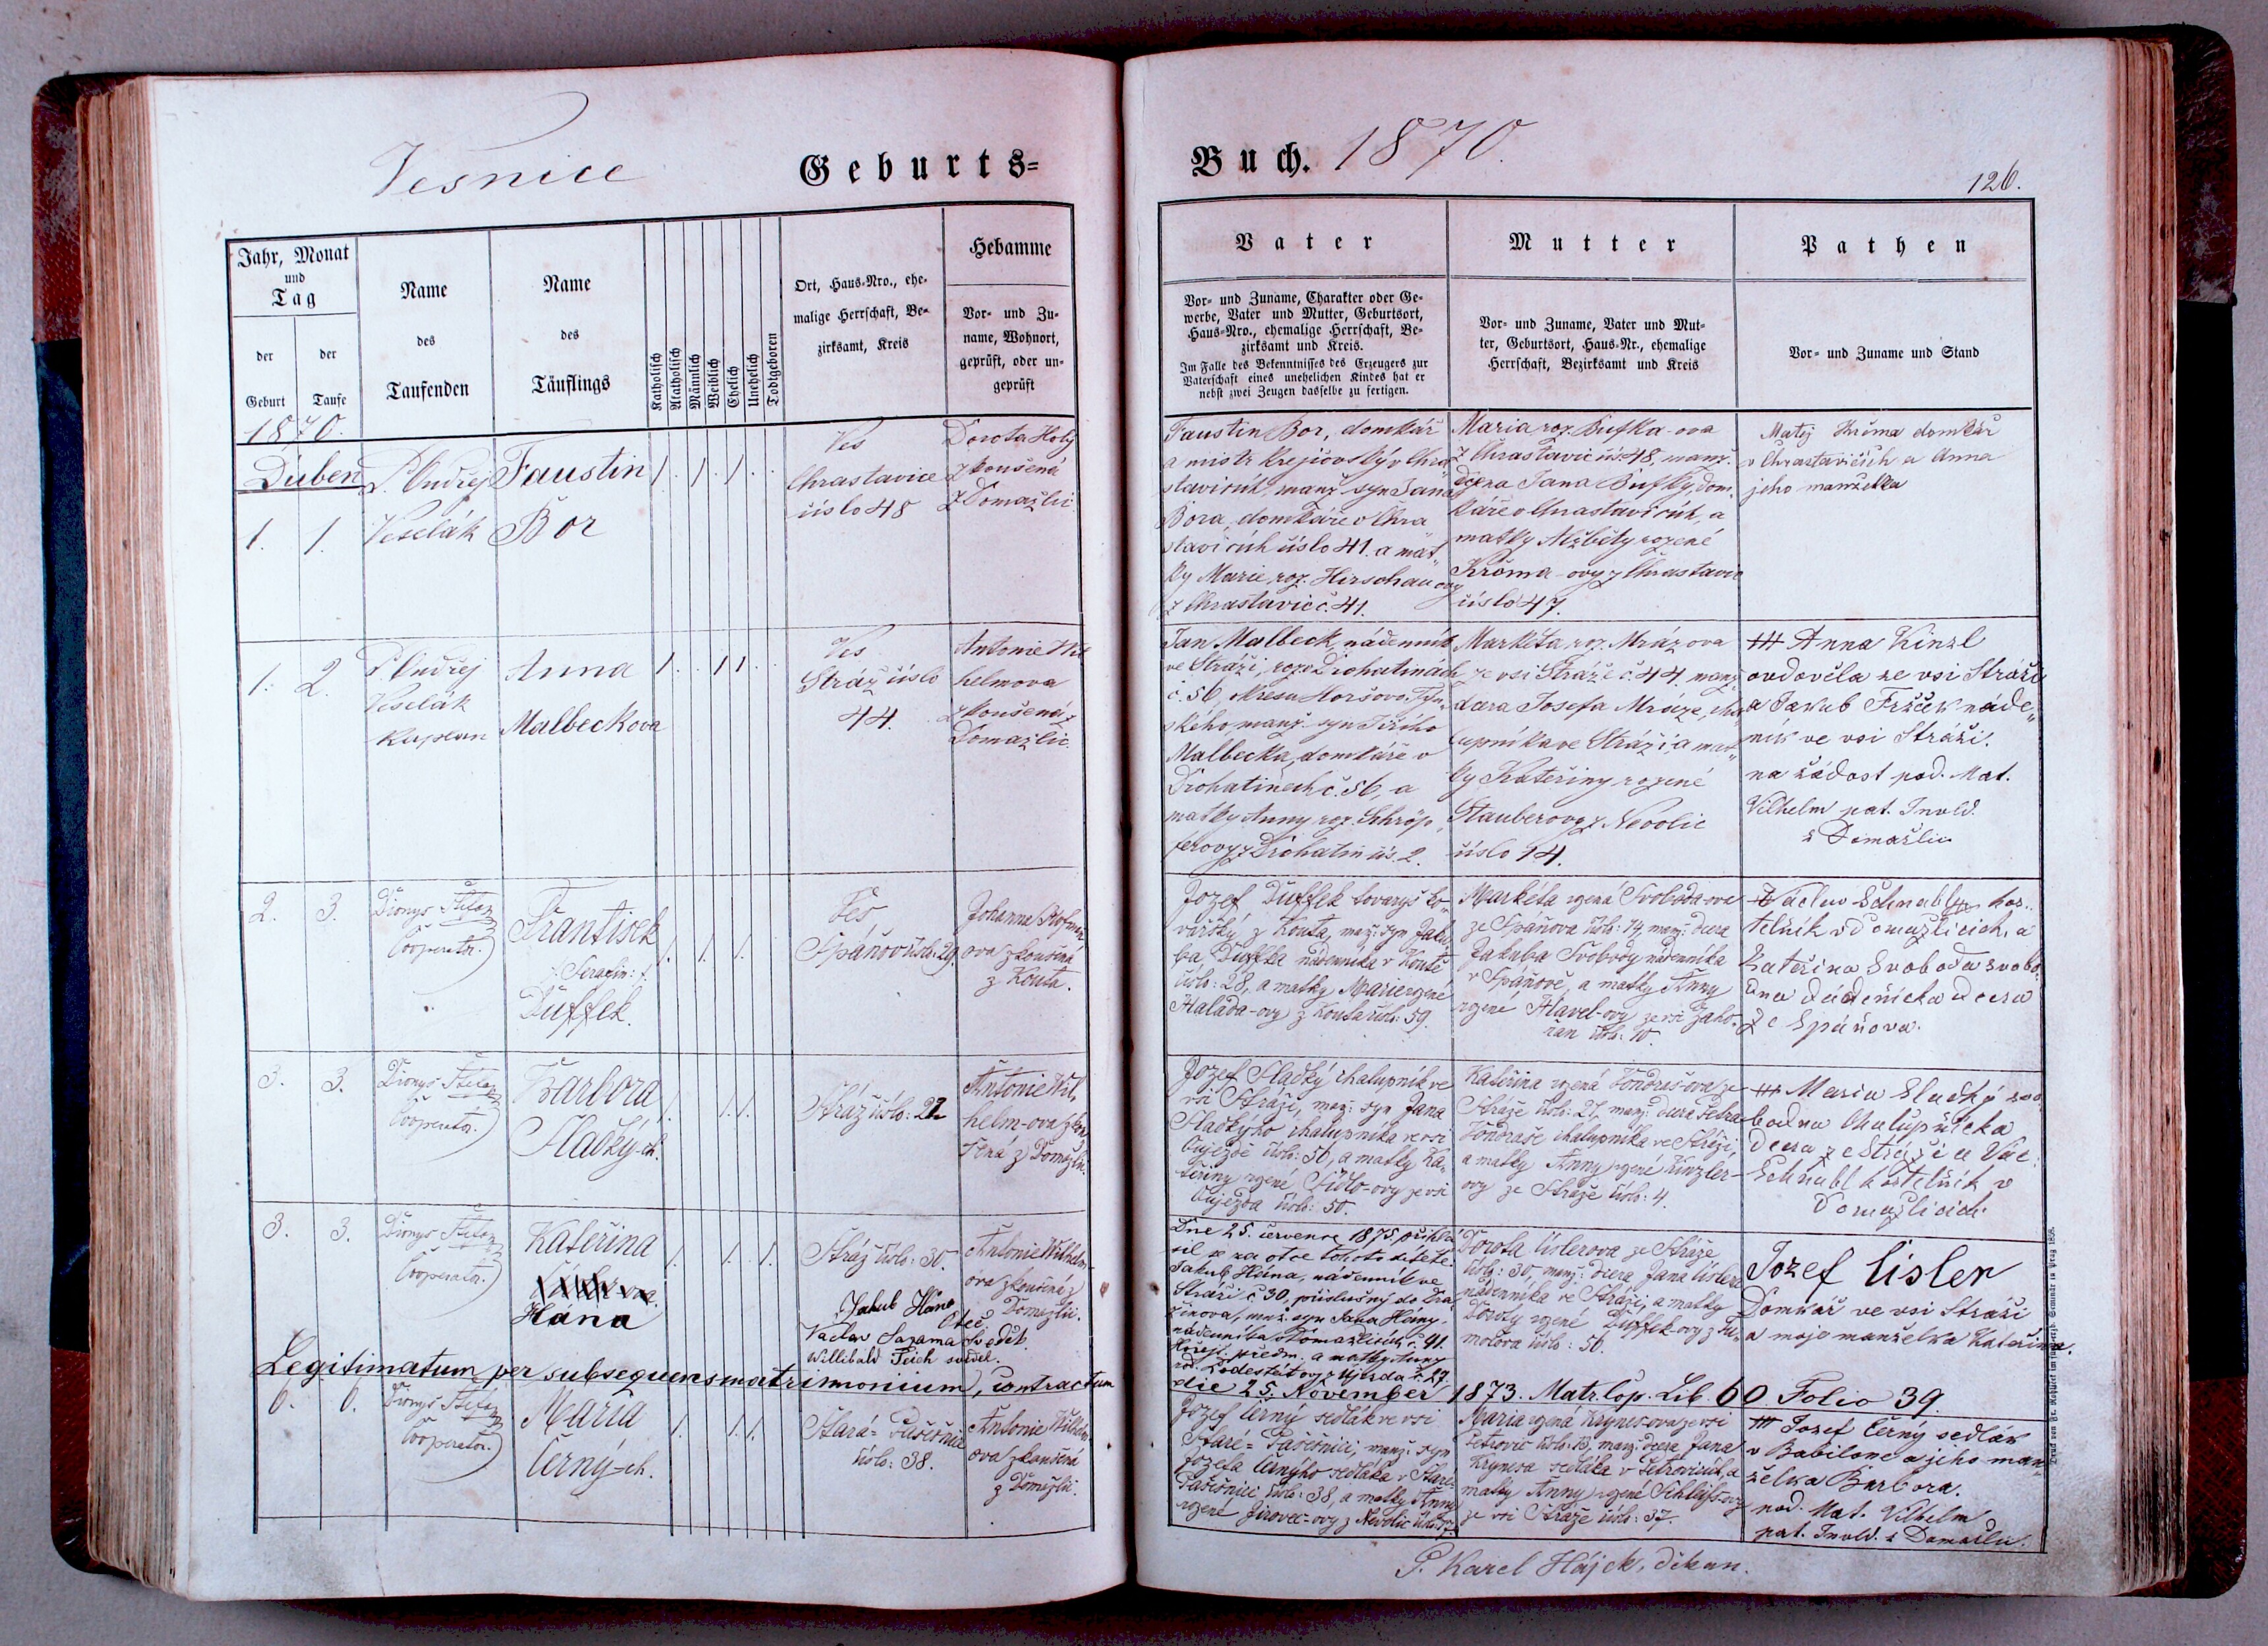 Vesnice
Geburts=
Buch. 1870.
126.
Jahr, Monat
und
Tag
der
Geburt
der
Taufe
Name
des
Taufenden
Name
des
Täuflings
Katholisch
Akatholisch
Männlich
Weiblich
Ehelich
Unehelich
Todtgeboren
Ort, Haus-Nro., ehe-
malige Herrschaft, Be-
zirksamt, Kreis
Hebamme
Vor- und Zu-
name, Wohnort,
geprüft, oder un-
geprüft
Vater
Vor- und Zuname, Charakter oder Ge-
werbe, Vater und Mutter, Geburtsort,
Haus-Nro., ehemalige Herrschaft, Be-
zirksamt und Kreis.
Im Falle des Bekenntnisses des Erzeugers zur
Vaterschaft eines unehelichen Kindes hat er
nebst zwei Zeugen dasselbe zu fertigen.
Mutter
Vor- und Zuname, Vater und Mut-
ter, Geburtsort, Haus-Nr., ehemalige
Herrschaft, Bezirksamt und Kreis
Pathen
Vor- und Zuname und Stand
1870.
Duben
1. 1.
P. Ondřej
Veselák
Faustin
Bor
Ves
Chrastavice
číslo 48
Dorota Holý
zkoušená
z Domažlic
Faustin Bor, domkář
a mistr krejčovský v Chra
stavicích, manž. syn Jana
Bora, domkáře v Chra
stavicích číslo 41. a mat
ky Marie, roz. Hirschau-ovy
z Chrastavic č. 41.
Maria roz. Bufka-ova
z Chrastavic čís. 48, manž.
dcera Jana Bufky, dom
káře v Chrastavicích, a
matky Alžběty rozené
Krčma-ovy z Chrastavic
číslo 47.
Matěj Krčma domkář
v Chrastavicích a Anna
jeho manželka
1. 2.
P. Ondřej
Veselák
kaplan
Anna
Malbeckova
Ves
Stráž číslo
44.
Antonie Wil
helmova
zkoušená z
Domažlic
Jan Malbeck, nádenník
ve Stráži, roz. v Drohatínách
č. 56, okresu Horšovo-Týn„
ského, manž. syn Jiřího
Malbecka, domkáře v
Drohatínech č. 56, a
matky Anny roz. Schröp„
ferovy z Drohatín čís. 2.
Markéta roz. Mrázova
ze vsi Stráže č. 44. manž.
dcera Josefa Mráze, cha
lupníka ve Stráži a mat„
ky Kateřiny rozené
Stauberovy z Nevolic
číslo 14.
+++ Anna Kinzl
ovdověla ze vsi Stráži
a Jakub Frščik náde„
ník ve vsi Stráži.
na žádost pod. Mat.
Vilhelm pat. Invld.
z Domažlic
2. 3.
Dionys Štefan
Cooperator.
František
/: Serafin :/
Duffek.
Ves
Spáňov čísl: 29.
Johanna Hofman
ova zkoušená
z Kouta.
Jozef Duffek tovaryš ko„
vářský z Kouta, manž: syn Jaku
ba Duffka nádenníka v Koutě
číslo: 28, a matky Marie rozené
Halada-ovy z Kouta čísl: 59.
Markéta rozená Svoboda-ova
ze Spáňova čísl: 14, manž: dcera
Jakuba Svobody nádenníka
v Spáňově, a matky Anny
rozené Havel-ovy ze vsi Zaho„
řan čísl: 10.
Václav Schnabl kos„
telník v Domažlicích, a
Kateřina Svoboda svobo
dna dcera
ze Spáňova.
3. 3.
Dionys Štefan
Cooperator.
Barbora
Sladký-ch.
Stráž čísl: 22
Antonie Wil„
helm-ova zkou
šená z Domažlic.
Jozef Sladký chalupník ve
vsi Stráži, manž: syn Jana
Sladkýho chalupníka ve vsi
Oujezdě čísl: 50, a matky Ka„
teřiny rozené Šídlo-ovy ze vsi
Oujezda čísl: 50.
Kateřina rozená Vondraš-ova ze
Stráže čísl: 21, manž: dcera Petra
Vondraše chalupníka ve Stráži,
a matky Anny rozené Kinzler-
ovy ze Stráže čísl: 4.
+++ Maria Sladký svo
bodna chalupnická
dcera z Stráži a Vác.
Schnabl kostelník v
Domažlicích.
3. 3.
Dionys Štefan
Cooperator.
Kateřina
Hána
Stráž čísl: 30.
Antonie Wilhelm-
ova zkoušená z
Domažlic.
Jakub Hána
Otec.
Vaclav Sazama Svědek.
Willibald Teich svědek.
Dne 25. července 1875. přihlá
sil se za otce tohoto dítěte
Jakub Hána, nádenník ve
Stráži č 30, příslušný do Dra
ženova, manž. syn Jana Hány,
nádenníka v Domažlicích č. 91.
Hořejš. předm. a matky Anny
roz. Lodestät ovy z Újezda č. 27.
Dorota Cislerova ze Stráže
čísl: 30, manž: dcera Jana Cislera
nádenníka ve Stráži, a matky
Doroty rozené Duffek-ovy z Tu„
močova čísl: 56.
Jozef Cisler
Domkář ve vsi Stráži
a moje manželka Kateřina.
Legitimatum per subsequens matrimonium, contractum
die 25. November 1873. Matr. Cop. Lib. 60 Folio 39.
6. 6.
Dionys Štefan
Cooperator.
Maria
Černý-ch.
Stará-Pasečnice
čísl: 38.
Antonie Wilhelm
ova zkoušená
z Domažlic.
Jozef Černý sedlák ve vsi
Staré-Pasečnici, manž: syn
Jozefa Černýho sedláka v Staré
Pasečnici čísl: 38, a matky Anny
rozené Jirovec-ovy z Nevolic
Maria rozená Krynes-ova ze vsi
Petrovic čísl: 13, manž: dcera Jana
Krynesa sedláka v Petrovicích, a
matky Anny rozené Schleiss-ovy
ze vsi Stráže čísl: 37.
+++ Josef Černý sedlák
v Babiloně a jeho man„
želka Barbora.
pod. Mat. Vilhelm
pat. Invld. z Domažlic.
P. Karel Hájek, děkan.